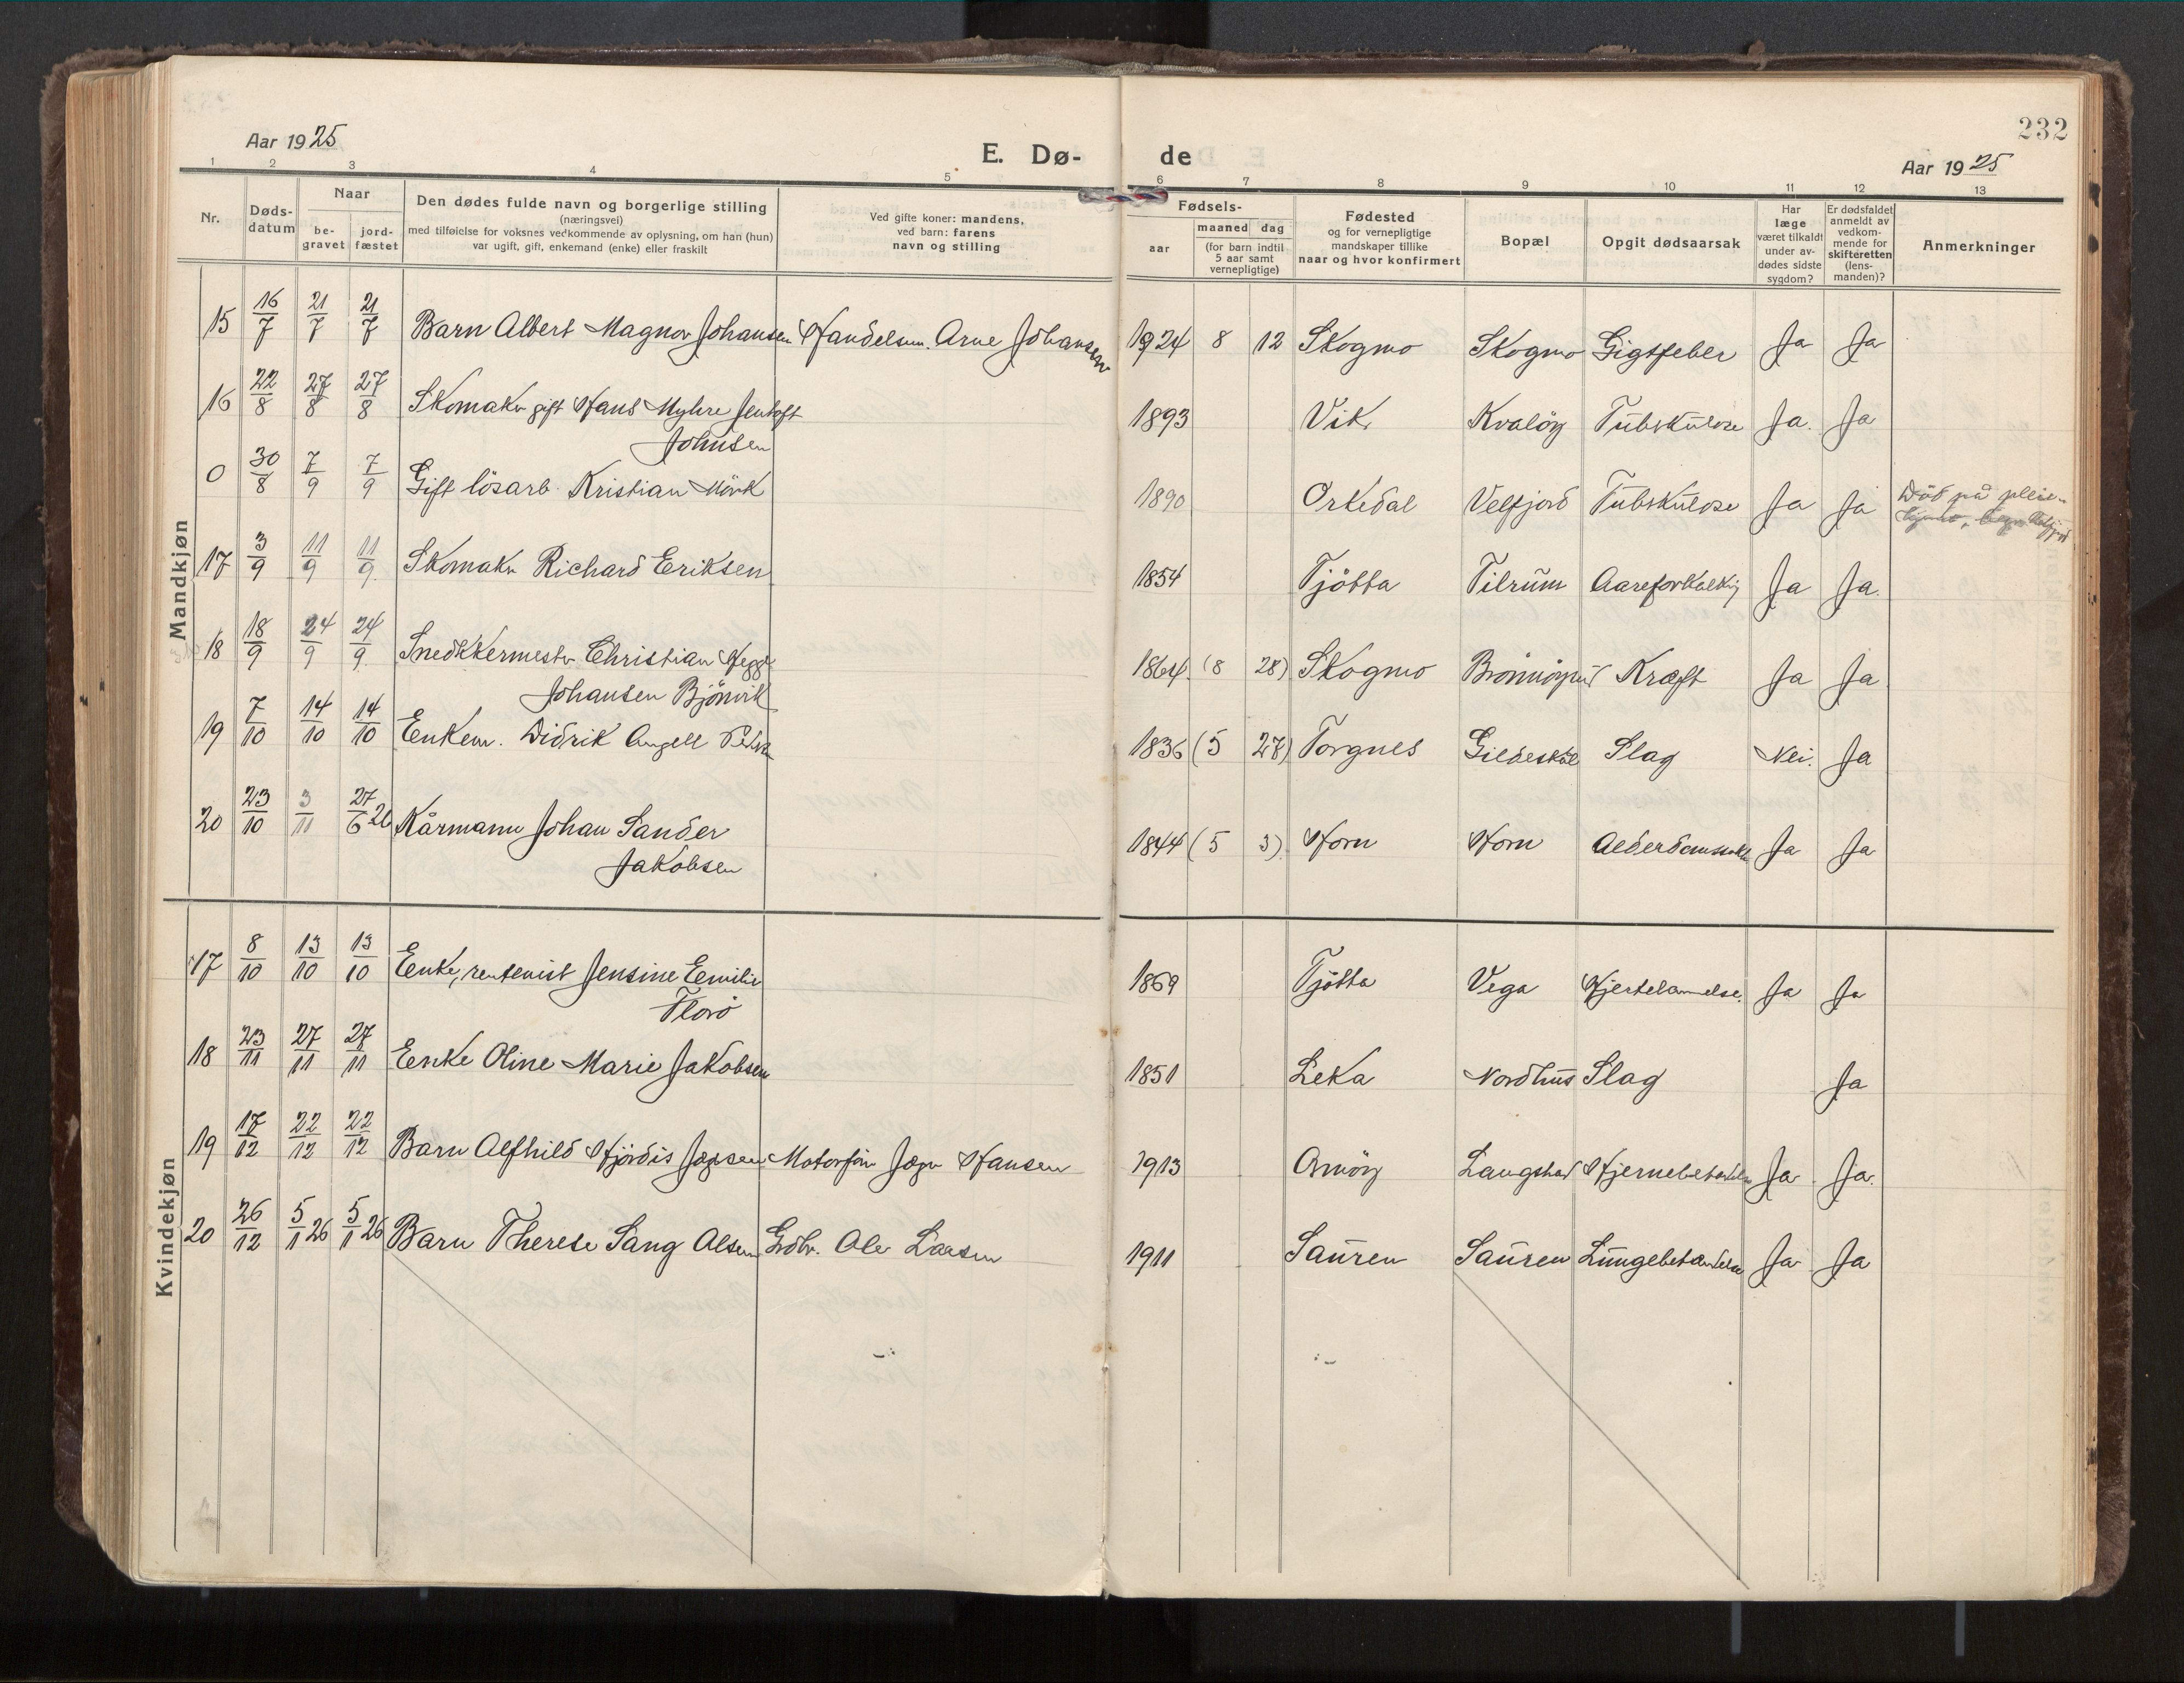 232
Aar 1925
E. Dø- de
Aar 1925
1 2 3 4 5 6 7 8 9 10 11 12 13
Nr.
Døds-
datum
Naar
be-
gravet
jord-
fæstet
Den dødes fulde navn og borgerlige stilling
(næringsvei)
med tilføielse for voksnes vedkommende av oplysning, om han (hun)
var ugift, gift, enkemand (enke) eller fraskilt
Ved gifte koner: mandens,
ved barn: farens
navn og stilling
Fødsels-
aar
maaned dag
(for barn indtil
5 aar samt
vernepligtige)
Fødested
og for vernepligtige
mandskaper tillike
naar og hvor konfirmert
Bopæl
Opgit dødsaarsak
Har
læge
været tilkaldt
under av-
dødes sidste
sygdom?
Er dødsfaldet
anmeldt av
vedkom-
mende for
skifteretten
(lens-
manden)?
Anmerkninger
Mandkjøn
15 16/7 21/7 21/7 Barn Albert Magnor Johansen Handelsm. Arne Johansen 1924 8 12 Skogmo Skogmo Gigtfeber Ja Ja
16 22/8 27/8 27/8 Skomaker gift Hans Myhre Jentoft 1893 Vik Kvaløy Tuberkulose Ja. Ja
Johnsen
0 30/8 7/9 7/9 Gift lösarb. Kristian Mörk 1890 Orkedal Velfjord Tuberkulose Ja Ja Död på pleie-
17 3/9 11/9 11/9 Skomaker Richard Eriksen 1854 Tjötta Tilrum Aareforkalkn Ja Ja.
18 18/9 24/9 24/9. Snedkkermester Christian Hegge 1864 (8 28) Skogmo Brönnöysund Kræft Ja Ja
Johansen Bjørnvik
19 7/10 14/10 14/10 Enkem. Didrik Angell 1836 (5 27) Torgnes Gildeskål Slag Nei. Ja
20 23/10 3/11 27/6 26 Kårmann Johan Sander 1844 (5 3) Horn Horn Alderdomssvakh Ja Ja
Jakobsen
Kvindekjøn
17 8/10 13/10 13/10 Enke, rentenist Jensine Emilie 1869 Tjötta Vega Hjertelammelse. Ja Ja
Florö
18 23/11 27/11 27/11 Enke Oline Marie Jakobsen 1851 Leka Nordhus Slag Ja
19 17/12 22/12 22/12 Barn Alfhild Hjördis Jægersen Motorför Jæger Hansen 1913 Omöy Langstad Hjernebetændelse Ja Ja.
20 26/12 5/1 26 5/1 26 Barn Therese Sang Olsen Grdbr. Ole Larsen 1911 Sauren Sauren Lungebetændelse Ja Ja